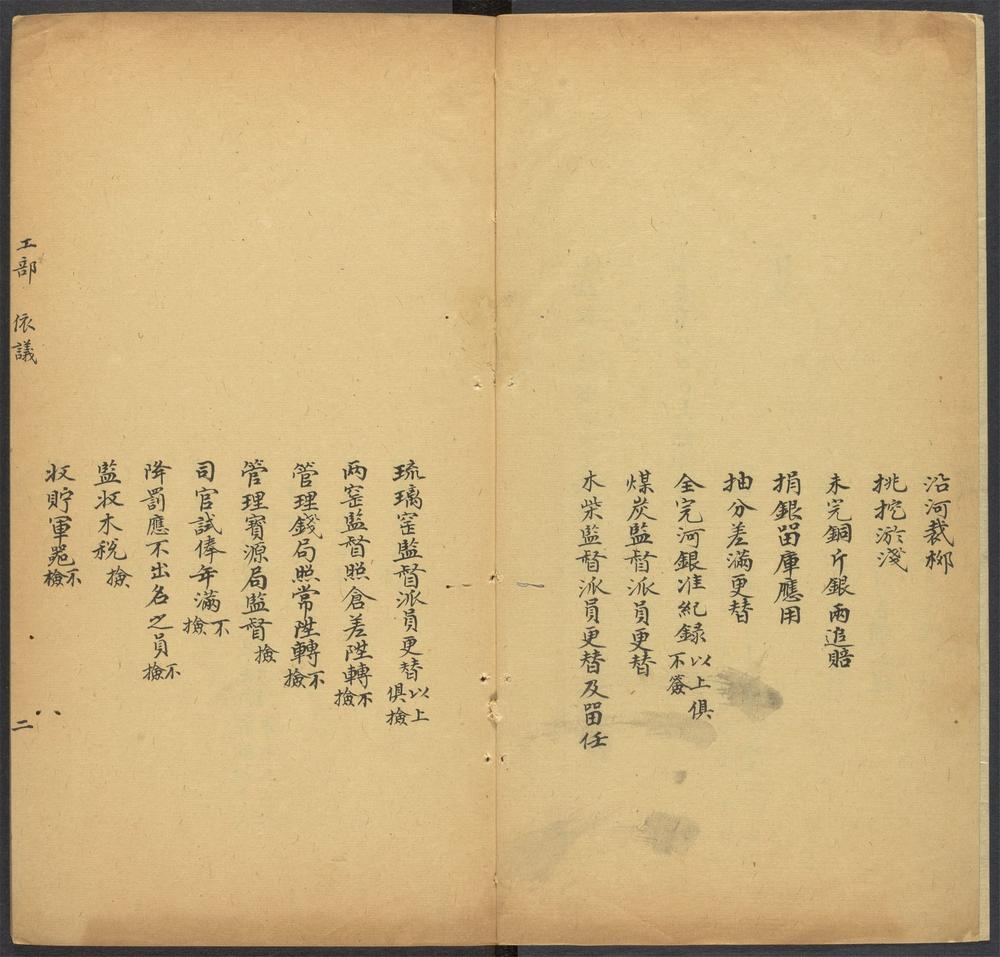 沿河裁柳
挑挖淤淺
未完銅斤銀兩追賠
捐銀留庫應用
抽分差滿更替
全完河銀准紀録以上俱不簽
煤炭監督派員更替
木柴監督派員更替及留任
琉璃窑監督派員更替以上俱撿
两窑監督照倉差陞轉不撿
管理錢局照常陞轉不撿
管理寳源局監督撿
司官試俸年滿不撿
降罰應不出名之員不撿
監收木税撿
收貯軍器不撿
工部 依議
二